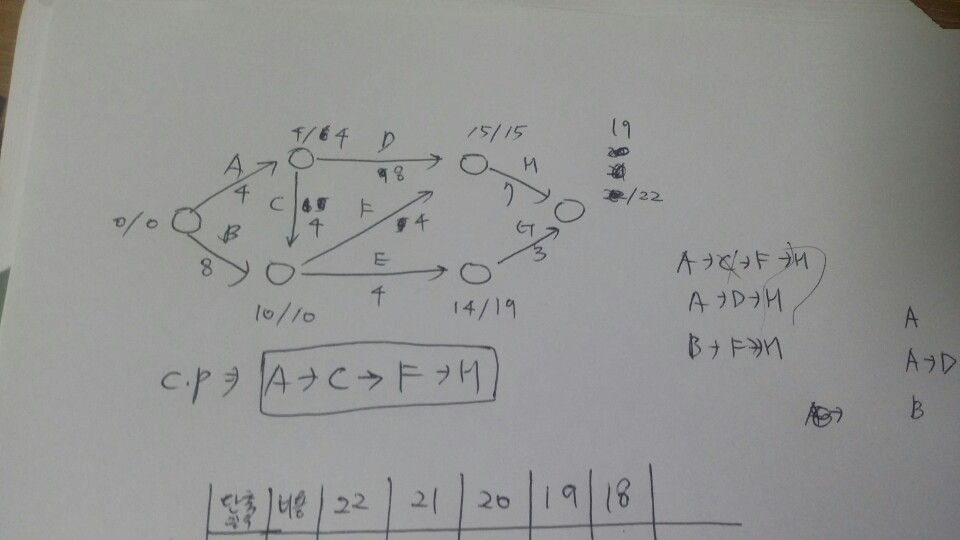 4/4
D
15/15
19
A
8
H
/22
4
C
F
7
0/0
4
4
G
B
E
3
8
4
10/10
14/19
A→C→F→H
A→D→H
B→F→H
A
A→D
B
C.P⇒ A→C→F→H
단축 비용 22 21 20 19 18